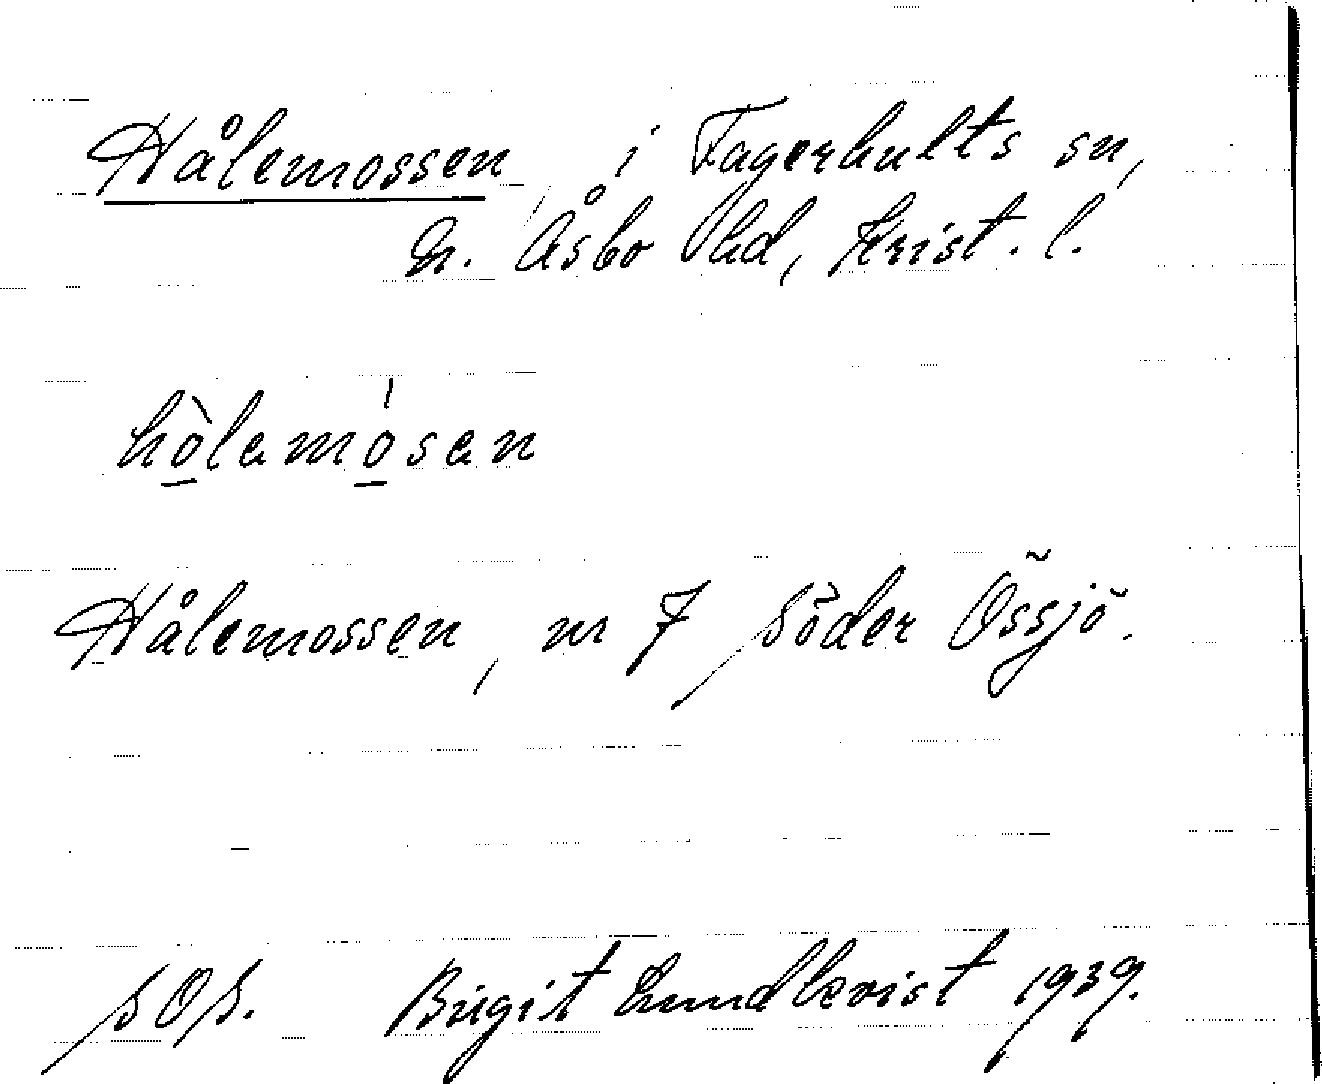 Hålemossen, i Fagerhults sn,
N. Åsbo hd, Krist. l.
hò̱lamó̱san
Hålemossen, nr 7 Söder Össjö.
SOS. Birgit Lundkvist 1939.